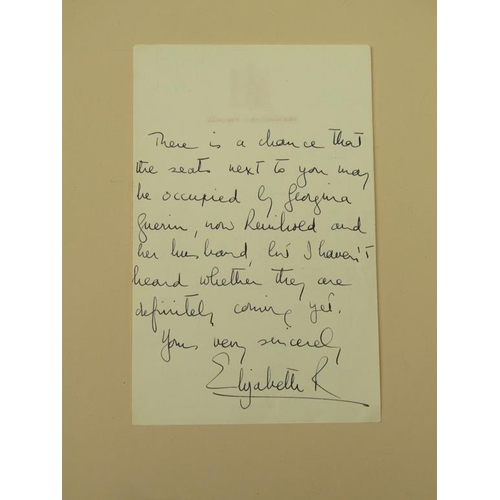 There is a chance that
the seats next to you may
be occupied by Georgina
Guerin, now Reinhold and
her husband, but I haven't
heard whether they are
definitely coming yet.
Yours very sincerely
Elizabeth R